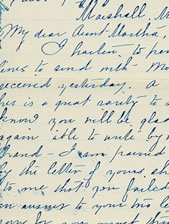 Marshall,
My dear Aunt Martha,
I hasten to
lines to send with
received yesterday. A
is a great rarity to
know you will be glad
again able to write by
hand - I am pained
by the letter of yours
to me that you failed
an answer to your